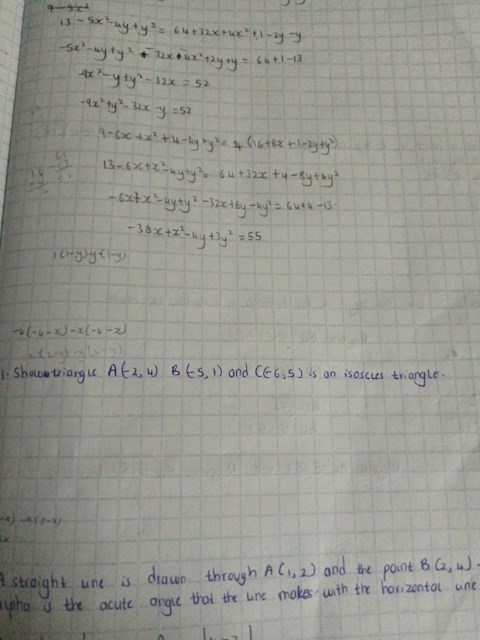 13 - 5x² - 4y + y² = 64 + 32x + 4x² + 1 - 2y - y
-5x² - 4y + y² - 32x + 4x² + 2y + y = 64 + 1 - 13
-9x² - y + y² - 32x = 52
-9x² + y² - 32x - y = 52
9 - 6x + x² + 4 - 4y + y² = 4 (16 + 8x + 1 - 2y + y²)
13 - 6x + x² - 4y + y² = 64 + 32x + 4 - 8y + 4y²
-6x + x² - 4y + y² - 32x + 8y - 4y² = 64 + 4 - 13
-38x + x² - 4y + 3y² = 55
1(1-y) - y(1-y)
-4(-4-x) - x(-4-x)
1. Show triangle A(-2, 4) B(-5, 1) and C(-6, 5) is an isosceles triangle.
-x) - x(1-x)
A straight line is drawn through A(1, 2) and the point B(2, 4).
alpha is the acute angle that the line makes with the horizontal line